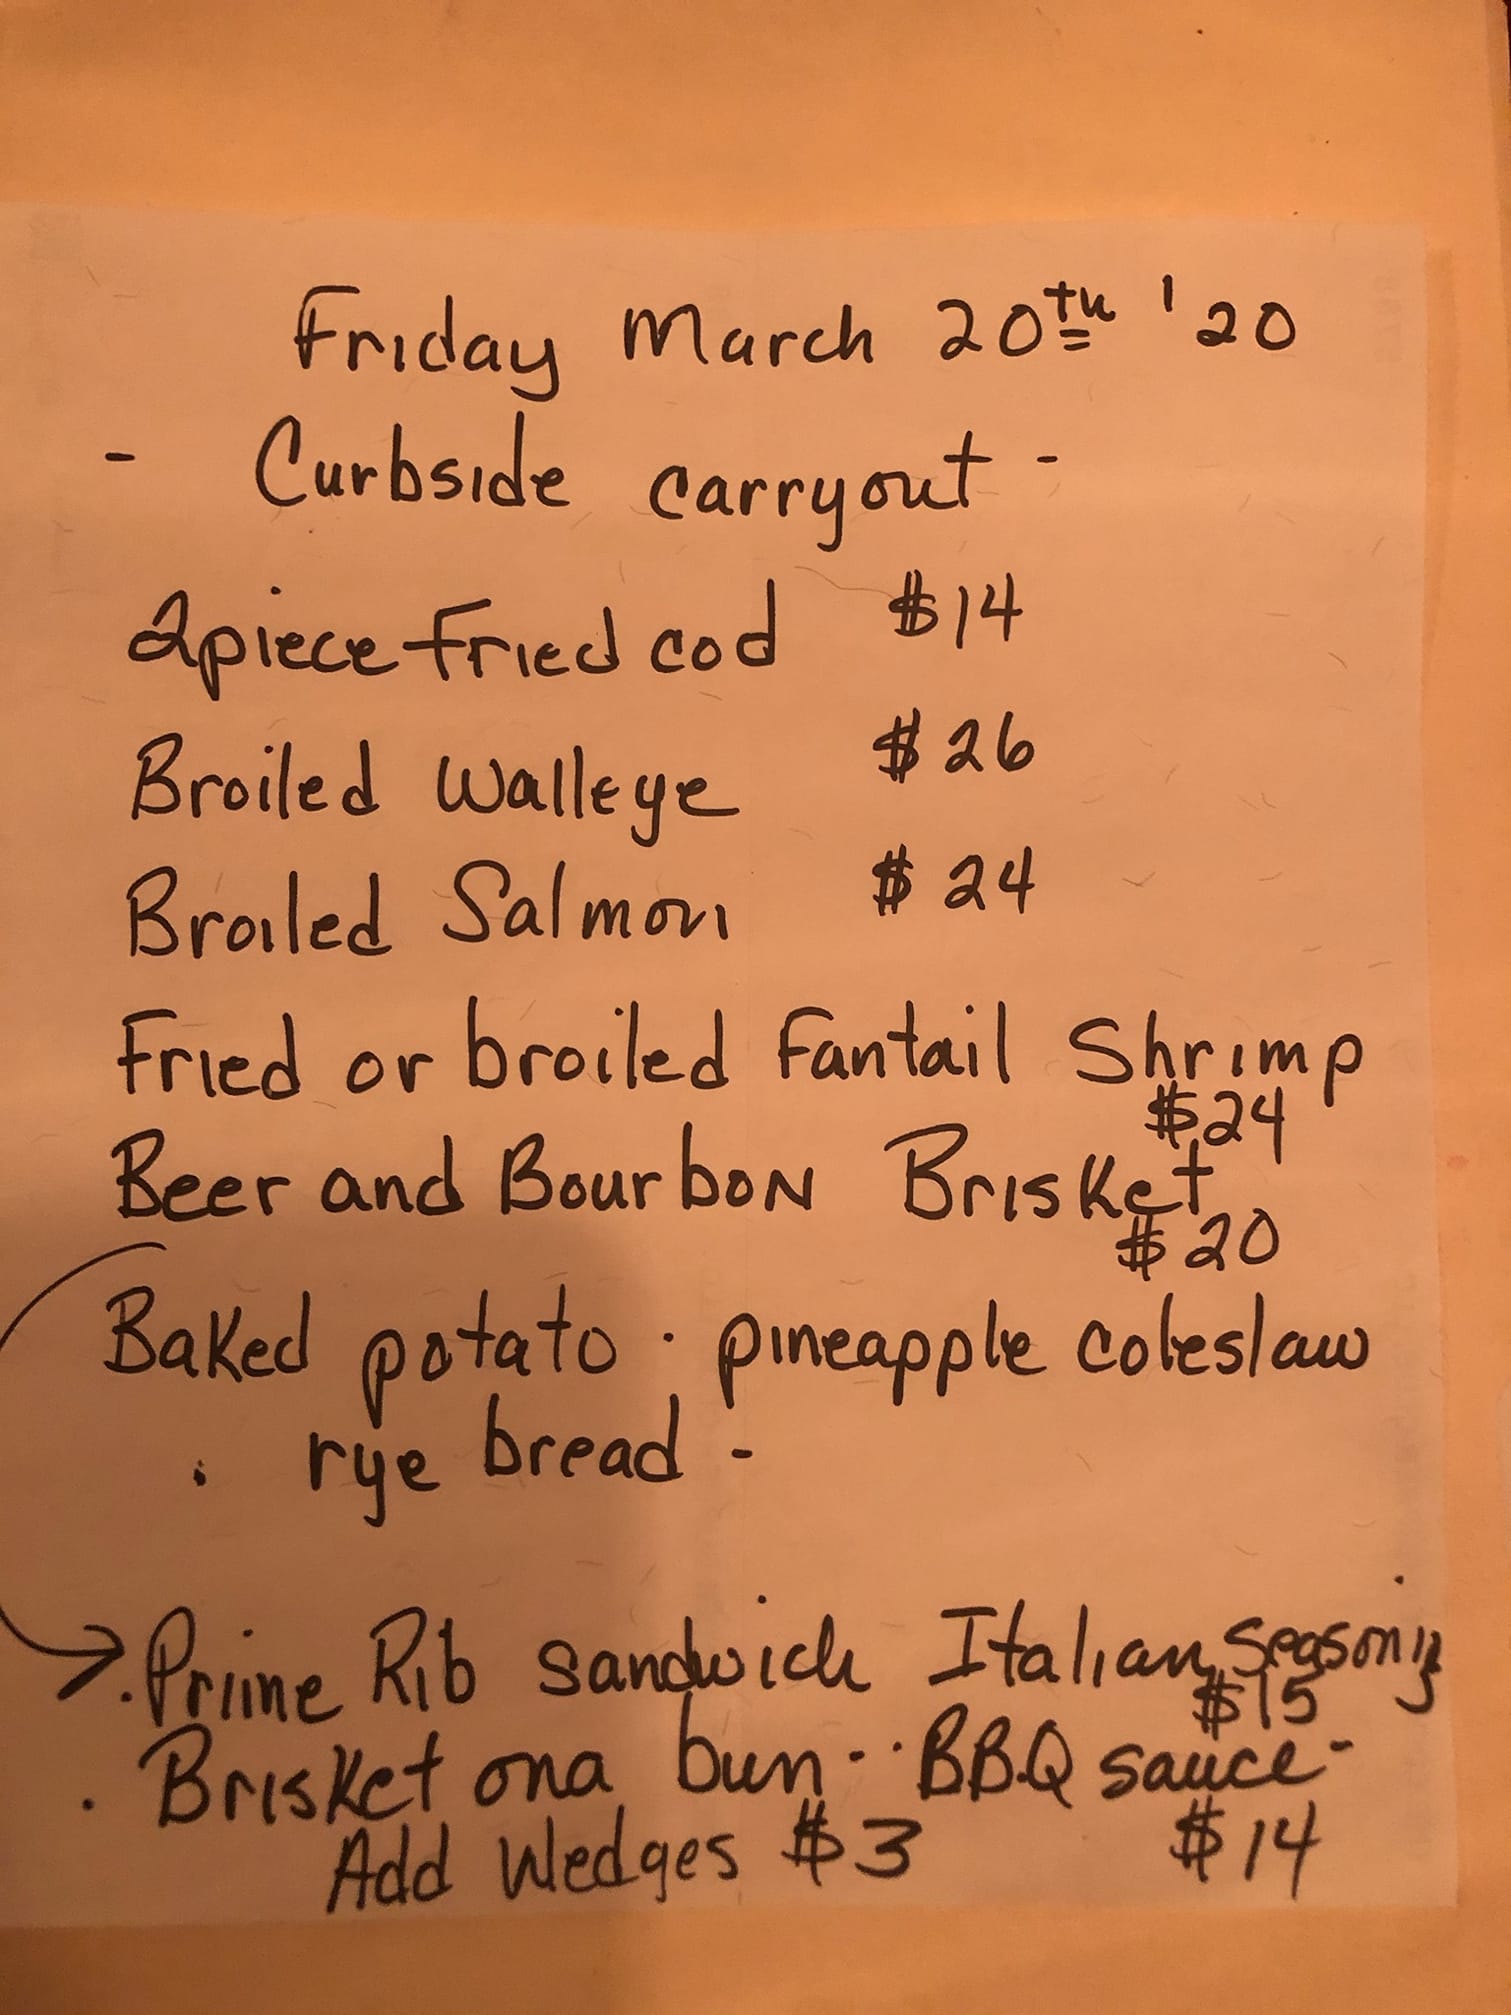 Friday March 20th '20
- Curbside carryout -
2piece fried cod $14
Broiled Walleye $26
Broiled Salmon $24
Fried or broiled Fantail Shrimp
$24
Beer and Bourbon Brisket
$20
Baked potato · pineapple coleslaw
· rye bread -
→ · Prime Rib sandwich Italian Seasoning
$15
· Brisket on a bun - · BBQ sauce -
Add Wedges $3 $14